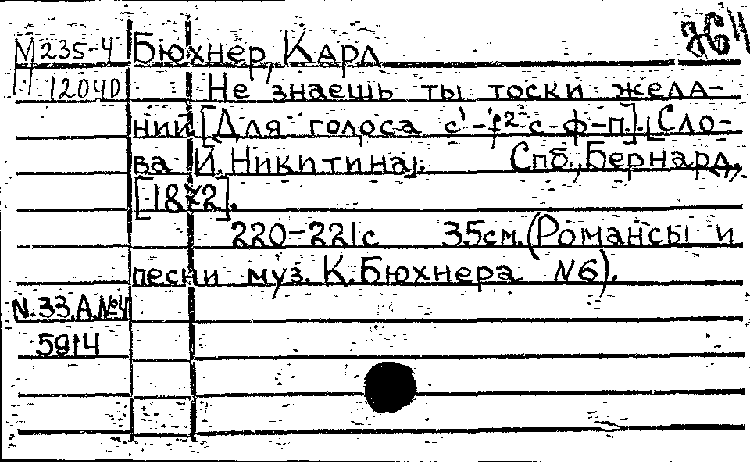 М 235-4 Бюхнер, Карл
1204D Не знаешь ты тоски жела-
ний [Для голоса c¹-f² с ф-п.]. [Сло-
ва И. Никитина]. Спб., Бернард,
[1872].
220-221с 35см. (Романсы и
песни муз. К. Бюхнера №6).
N.33.А.№4
5914